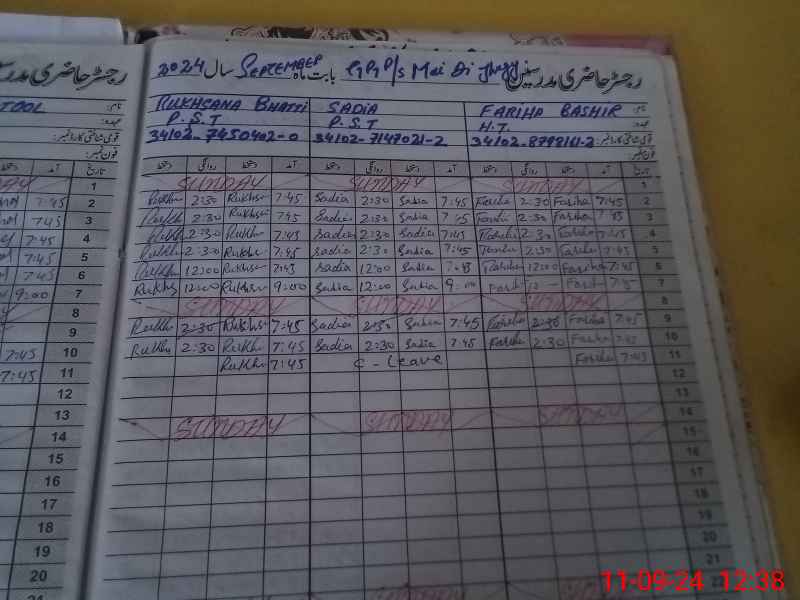 رجسٹر حاضری مدرسین سال 2024 بابت ماہ SEPTEMBER G.G.P/S Mai Di Jhuggi رجسٹر حاضری مدرسین
TOOL RUKHSANA BHATTI SADIA FARIHA BASHIR نام:
عہدہ: P.S.T P.S.T H.T. عہدہ:
قومی شناختی کارڈ نمبر: 34102-7450402-0 34102-7147021-2 34102-8798161-2 قومی شناختی کارڈ نمبر:
فون نمبر: فون نمبر:
تاریخ آمد دستخط دستخط روانگی دستخط آمد دستخط روانگی دستخط آمد دستخط روانگی دستخط آمد تاریخ
1 SUNDAY SUNDAY SUNDAY 1
7:45 2 Rukhs 2:30 Rukhsa 7:45 Sadia 2:30 Sadia 7:45 Fariha 2:30 Fariha 7:45 2
7:45 3 Rukhs 2:30 Rukhsa 7:45 Sadia 2:30 Sadia 7:45 Fariha 2:30 Fariha 7:45 3
7:45 4 Rukhs 2:30 Rukhs 7:45 Sadia 2:30 Sadia 7:45 Fariha 2:30 Fariha 7:45 4
7:45 5 Rukhs 2:30 Rukhs 7:45 Sadia 2:30 Sadia 7:45 Fariha 2:30 Fariha 7:45 5
7:45 6 Rukhs 12:00 Rukhsa 7:45 Sadia 12:00 Sadia 7:45 Fariha 12:00 Fariha 7:45 6
9:00 7 Rukhs 12:00 Rukhsa 9:00 Sadia 12:00 Sadia 9:00 7
8 SUNDAY SUNDAY SUNDAY 8
9 Rukhs 2:30 Rukhs 7:45 Sadia 2:30 Sadia 7:45 Fariha 2:30 Fariha 7:45 9
7:45 10 Rukhs 2:30 Rukhs 7:45 Sadia 2:30 Sadia 7:45 Fariha 2:30 Fariha 7:45 10
7:45 11 Rukhs 7:45 C-Leave Fariha 7:45 11
12 12
13 13
14 SUNDAY SUNDAY SUNDAY 14
15 15
16 16
17 17
18 18
19 19
20 20
21
11-09-24 12:38